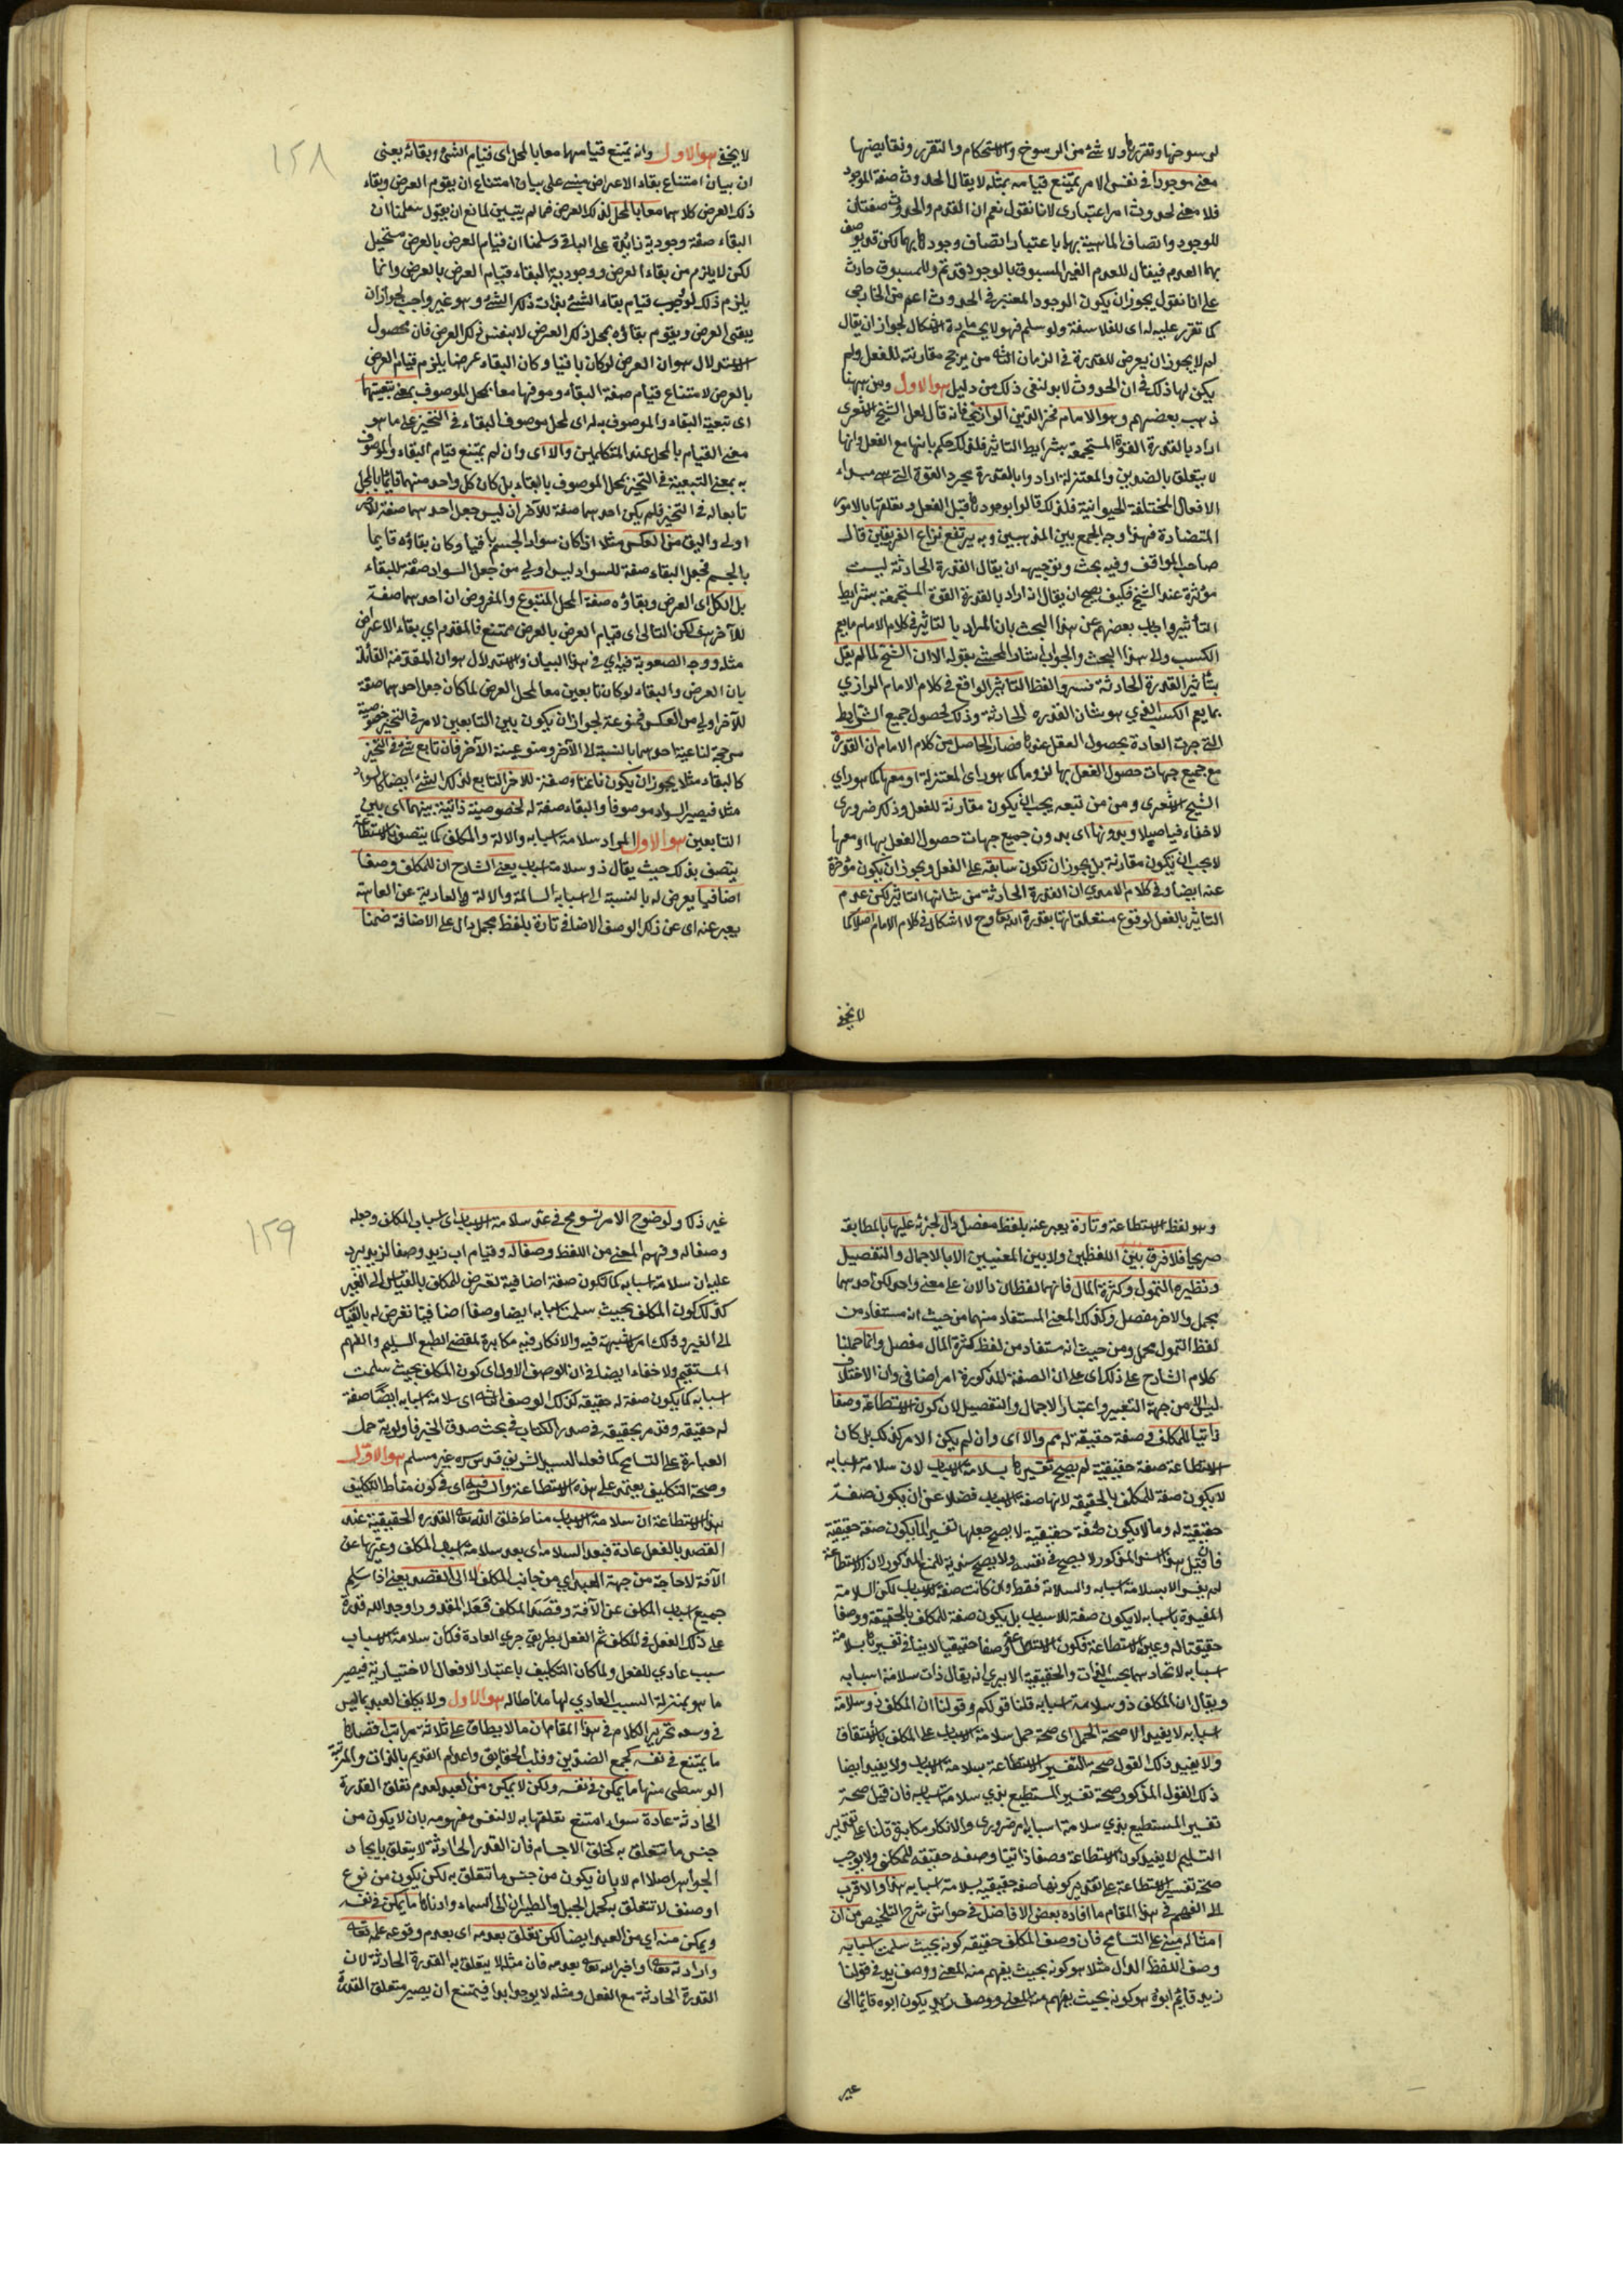 لرسوخها وتقررها ولا شئ من الرسوخ والاستحكام والتقرر ونقايضها
معنى موجودا في نفس الامر يمتنع قيامه بمثله لا يقال الحدوث صفة الموجود
فلا معنى لحدوث امر اعتباري لانا نقول نعم ان القدم والحدوث صفتان
للوجود واتصاف الماهية بهما باعتبار اتصاف وجودها بهما لكن قد يوصف
بهما العدم فيقال للعدم الغير المسبوق بالوجود قديم وللمسبوق حادث
على انا نقول يجوز ان يكون الوجود المعتبر في الحدوث اعم من الخارجي
كما تقرر عليه اى للفلاسفة ولو سلم فهو لا يحسم مادة الاشكال لجواز ان يقال
لم لا يجوز ان يعرض للقدرة في الزمان الثاني من يرجح مقارنته للفعل ولم
يكن لها ذلك في ان الحدوث لا بد لنفى ذلك من دليل هو الاول ومن ههنا
ذهب بعضهم وهو الامام فخر الدين الرازي فانه قال لعل الشيخ الاشعرى
اراد بالقدرة القوة المستجمعة بشرايط التاثير فلذلك حكم بانها مع الفعل وانها
لا يتعلق بالضدين والمعتزلة ارادوا بالقدرة مجرد القوة التي هي مبداء
الافعال المختلفة الحيوانية فلذلك قالوا بوجودها قبل الفعل وتعلقها بالامور
المتضادة فهذا وجه الجمع بين المذهبين وبه يرتفع نزاع الفريقين قال
صاحب المواقف وفيه بحث وتوجيهه ان يقال القدرة الحادثة ليست
مؤثرة عند الشيخ فكيف يصح ان يقال انه اراد بالقدرة القوة المستجمعة بشرايط
التأثير واجاب بعضهم عن هذا البحث بان المراد بالتاثير في كلام الامام ما يعم
الكسب والى هذا البحث والجواب اشار المحشى بقوله الا ان الشيخ لما لم يقل
بتأثير القدرة الحادثة فسروا لفظ التاثير الواقع في كلام الامام الرازي
بما يعم الكسب الذي هو شان القدره الحادثة وذلك لحصول جميع الشرايط
التى جرت العادة بحصول العقل عندها فصار الحاصل من كلام الامام ان القدرة
مع جميع جهات حصول الفعل بها لزوما كما هو راى المعتزلة او معها كما هو راي
الشيخ الاشعرى ومن من تبعه يجب ان يكون مقارنة للفعل وذلك ضرورى
لا خفاء فيه اصلا وبدونها اى بدون جميع جهات حصول الفعل بها او معها
لا يجب ان يكون مقارنة بل يجوز ان تكون سابقه على الفعل ويجوز ان يكون مؤخرة
عنه ايضا وفي كلام الامدي ان القدرة الحادثة من شانها التاثير لكن عدم
التاثير بالفعل لوقوع متعلقاتها بقدرة الله تعا وح لا اشكال في كلام الامام اصلا كما
لا يخفى
١٢٨
لا يخفى هو الاول وانه يمتنع قيامهما معا بالمحل اى قيام الشئ وبقائه يعنى
ان بيان امتناع بقاء الاعراض مبنى على بيان امتناع ان يقوم العرض وبقاء
ذلك العرض كلاهما معا بالمحل لذلك العرض فما لم يتبين لمانع ان يقول سلمنا ان
البقاء صفة وجودية زائدة على الباقى وسلمنا ان قيام العرض بالعرض مستحيل
لكن لا يلزم من بقاء العرض ووجودية البقاء قيام العرض بالعرض وانما
يلزم ذلك لو وجب قيام بقاء الشئ بذات ذلك الشئ وهو غير واجب لجواز ان
يبقى العرض ويقوم بقاؤه بمحل ذلك العرض لا بنفس ذلك العرض فان محصول
الاستدلال هو ان العرض لو كان باقيا وكان البقاء عرضا يلزم قيام العرض
بالعرض لامتناع قيام صفة البقاء وموصوفها معا بمحل الموصوف بمعنى تبعيتهما
اى تبعية البقاء والموصوف به له اى لمحل موصوف البقاء في التحيز على ما هو
معنى القيام بالمحل عند المتكلمين والا اى وان لم يمتنع قيام البقاء والموصوف
به بمعنى التبعية في التحيز بمحل الموصوف بالبقاء بل كان كل واحد منهما قائما بالمحل
تابعا له في التحيز فلم يكن احدهما صفة للآخر ان ليس جعل احدهما صفة للآخر
اولى واليق من العكس مثلا اذا كان سواد الجسم باقيا وكان بقاؤه قايما
بالجسم فجعل البقاء صفة للسواد ليس اولى من جعل السواد صفة للبقاء
بل الكل اى العرض وبقاؤه صفة المحل المتبوع والمفروض ان احدهما صفة
للآخر هف لكن التالى اى قيام العرض بالعرض ممتنع فالمقدم اي بقاء الاعراض
مثله ووجه الصعوبة فيه اي في هذا البيان والاستدلال هو ان المقدمة القائلة
بان العرض والبقاء لو كان تابعين معا لمحل العرض لما كان جعل احدهما صفة
للآخر اولى من العكس ممنوعة لجواز ان يكون بين التابعين لامر في التحيز خصوصية
مرجحة لناعتية احدهما بالنسبة الى الآخر ومنعوتية الآخر فان تابع شئ في التحيز
كالبقاء مثلا يجوز ان يكون ناعتا وصفة للآخر التابع لذلك الشئ ايضا كالسواد
مثلا فيصير السواد موصوفا والبقاء صفة له لخصوصية ذاتية بينهما اى بين
التابعين هو الاول المراد سلامة اسبابه والالة والمكلف كما يتصف بالاستطاعة
يتصف بذلك حيث يقال ذو سلامة اسباب يعنى الشارح ان للمكلف وصفا
اضافيا يعرض له بالنسبة الى اسبابه السالمة والالة والعارية عن العاهة
يعبر عنه اى عن ذلك الوصف الاضافى تارة بلفظ مجمل دال على الاضافة ضمنا
وهو لفظ الاستطاعة وتارة يعبر عنه بلفظ مفصل دال لجزئه عليها بالمطابقة
صريحا فلا فرق بين اللفظين ولا بين المعنيين الا بالاجمال والتفصيل
ونظيره التمول وكثرة المال فانهما لفظان دالان على معنى واحد لكن احدهما
مجمل والاخر مفصل وكذلك المعنى المستفاد منهما من حيث انه مستفاد من
لفظ التمول مجمل ومن حيث انه مستفاد من لفظ كثرة المال مفصل وانما حملنا
كلام الشارح على ذلك اى على ان الصفة المذكورة امر اضافى وان الاختلاف
ليس الا من جهة التعبير واعتبار الاجمال والتفصيل لان كون الاستطاعة وصفا
ذاتيا للمكلف وصفة حقيقة له مم والا اى وان لم يكن الامر كذلك بل كان
الاستطاعة صفة حقيقية لم يصح تفسيرها بسلامة الاسباب لان سلامة اسبابه
لا يكون صفة للمكلف بالحقيقه لانها صفة الاسباب فضلا عن ان يكون صفة
حقيقية له وما لا يكون صفة حقيقية لا يصح جعلها تفسيرا لما يكون صفة حقيقية
فان قيل هذا السند المذكور لا يصح في نفسه ولا يصح سنديته للمنع المذكور لان الاستطاعة
لم يفسر الا بسلامة اسبابه والسلامة فقط وان كانت صفة للاسباب لكن السلامة
المقيدة باسبابه لا يكون صفة للاسباب بل يكون صفة للمكلف بالحقيقة ووصفا
حقيقة له وعين الاستطاعة فكون الاستطاعة وصفا حقيقيا لا ينافى تفسيرها بسلامة
اسبابه لاتحادهما بحسب الذات والحقيقية الا يرى انه يقال ذات سلامة اسبابه
ويقال ان المكلف ذو سلامة اسبابه قلنا قولكم وقولنا ان المكلف ذو سلامة
اسبابه لا يفيد الا صحة الحمل اى صحة حمل سلامة الاسباب على المكلف بالاشتقاق
ولا يفيد ذلك القول صحة التفسير الاستطاعة بسلامة الاسباب ولا يفيد ايضا
ذلك القول المذكور صحة تفسير المستطيع بذي سلامة اسبابه فان قيل صحة
تفسير المستطيع بذي سلامة اسبابه امر ضرورى والانكار مكابرة قلنا على تقدير
التسليم لا يفيد كون الاستطاعة وصفا ذاتيا وصفه حقيقة للمكلف ولا يوجب
صحة تفسير الاستطاعة على تقدير كونها صفة حقيقية بسلامة اسبابه هذا والاقرب
الى الفهم في هذا المقام ما افاده بعض الافاضل في حواش شرح التلخيص من ان
امثاله مبنى على التسامح فان وصف المكلف حقيقه كونه بحيث سلمت اسبابه
وصف اللفظ الدال مثلا هو كونه بحيث يفهم منه المعنى ووصف زيد في قولنا
زيد قائم ابوه هو كونه بحيث يفهم منه المعنى ووصف زيد يكون ابوه قائما الى
غير
١٢٩
غير ذلك ولوضوح الامر تسومح في عد سلامة الاسباب اى اسباب المكلف وجعله
وصفا له وفهم المعنى من اللفظ وصفا له وقيام اب زيد وصفا لزيد يرد
عليه ان سلامة اسبابه كما تكون صفة اضافية تعرض للمكلف بالقياس الى الغير
كذلك كون المكلف بحيث سلمت اسبابه ايضا وصفا اضافيا تعرض له بالقياس
الى الغير وذلك امر لا شبهة فيه والانكار فيه مكابرة لمقتضى الطبع السليم والفهم
المستقيم ولا خفاء ايضا في ان الوصف الاول اى كون المكلف بحيث سلمت
اسبابه كما يكون صفة له حقيقه كذلك الوصف الثانى اى سلامة اسبابه ايضا صفة
له حقيقه وقد مر تحقيقه في صدر الكتاب في بحث صدق الخبر فاولوية حمل
العبارة على التسامح كما فعله السيد الشريف قدس سره غير مسلم هو الاول
وصحة التكليف يعتمد على هذه الاستطاعة والسر فيه اى في كون مناط التكليف
هذه الاستطاعة ان سلامة الاسباب مناط خلق الله تعا القدره الحقيقية عند
القصد بالفعل عادة فبعد السلامة اى بعد سلامة اسباب المكلف وغيرها عن
الآفة لا حاجة من جهة العبد اي من جانب المكلف الا الى القصد يعنى اذا سلم
جميع اسباب المكلف عن الآفة وقصد المكلف فعله المقدور اوجد الله قدرة
على ذلك الفعل في المكلف ثم الفعل بطريق جري العادة فكان سلامة الاسباب
سبب عادي للفعل ولما كان التكليف باعتبار الافعال الاختيارية فيصير
ما هو بمنزلة السبب العادي لها مناطا له هو الاول ولا يكلف العبد بما ليس
في وسعه تحرير الكلام في هذا المقام ان ما لا يطاق على ثلاثة مراتب اقصاها
ما يمتنع في نفسه كجمع الضدين وقلب الحقايق واعدام القديم بالذات والمرتبة
الوسطى منها ما يمكن في نفسه ولكن لا يمكن من العبد لعدم تعلق القدرة
الحادثة عادة سواء امتنع تعلقها به لا لنفس مفهومه بان لا يكون من
جنس ما تتعلق به كخلق الاجسام فان القدرة الحادثة لا يتعلق بايجاد
الجواهر اصلا ام لا بان يكون من جنس ما تتعلق به لكن يكون من نوع
او صنف لا تتعلق به كحمل الجبل والطيران الى السماء وادناها ما يمكن في نفسه
ويمكن منه اى من العبد ايضا لكن تعلق بعدمه اى بعدم وقوعه علمه تعا
وارادته تعا واخبر الله تعا بعدمه فان مثله لا يتعلق به القدرة الحادثة لان
القدرة الحادثة مع الفعل ومثله لا يوجد ابدا فيمتنع ان يصير متعلق القدرة